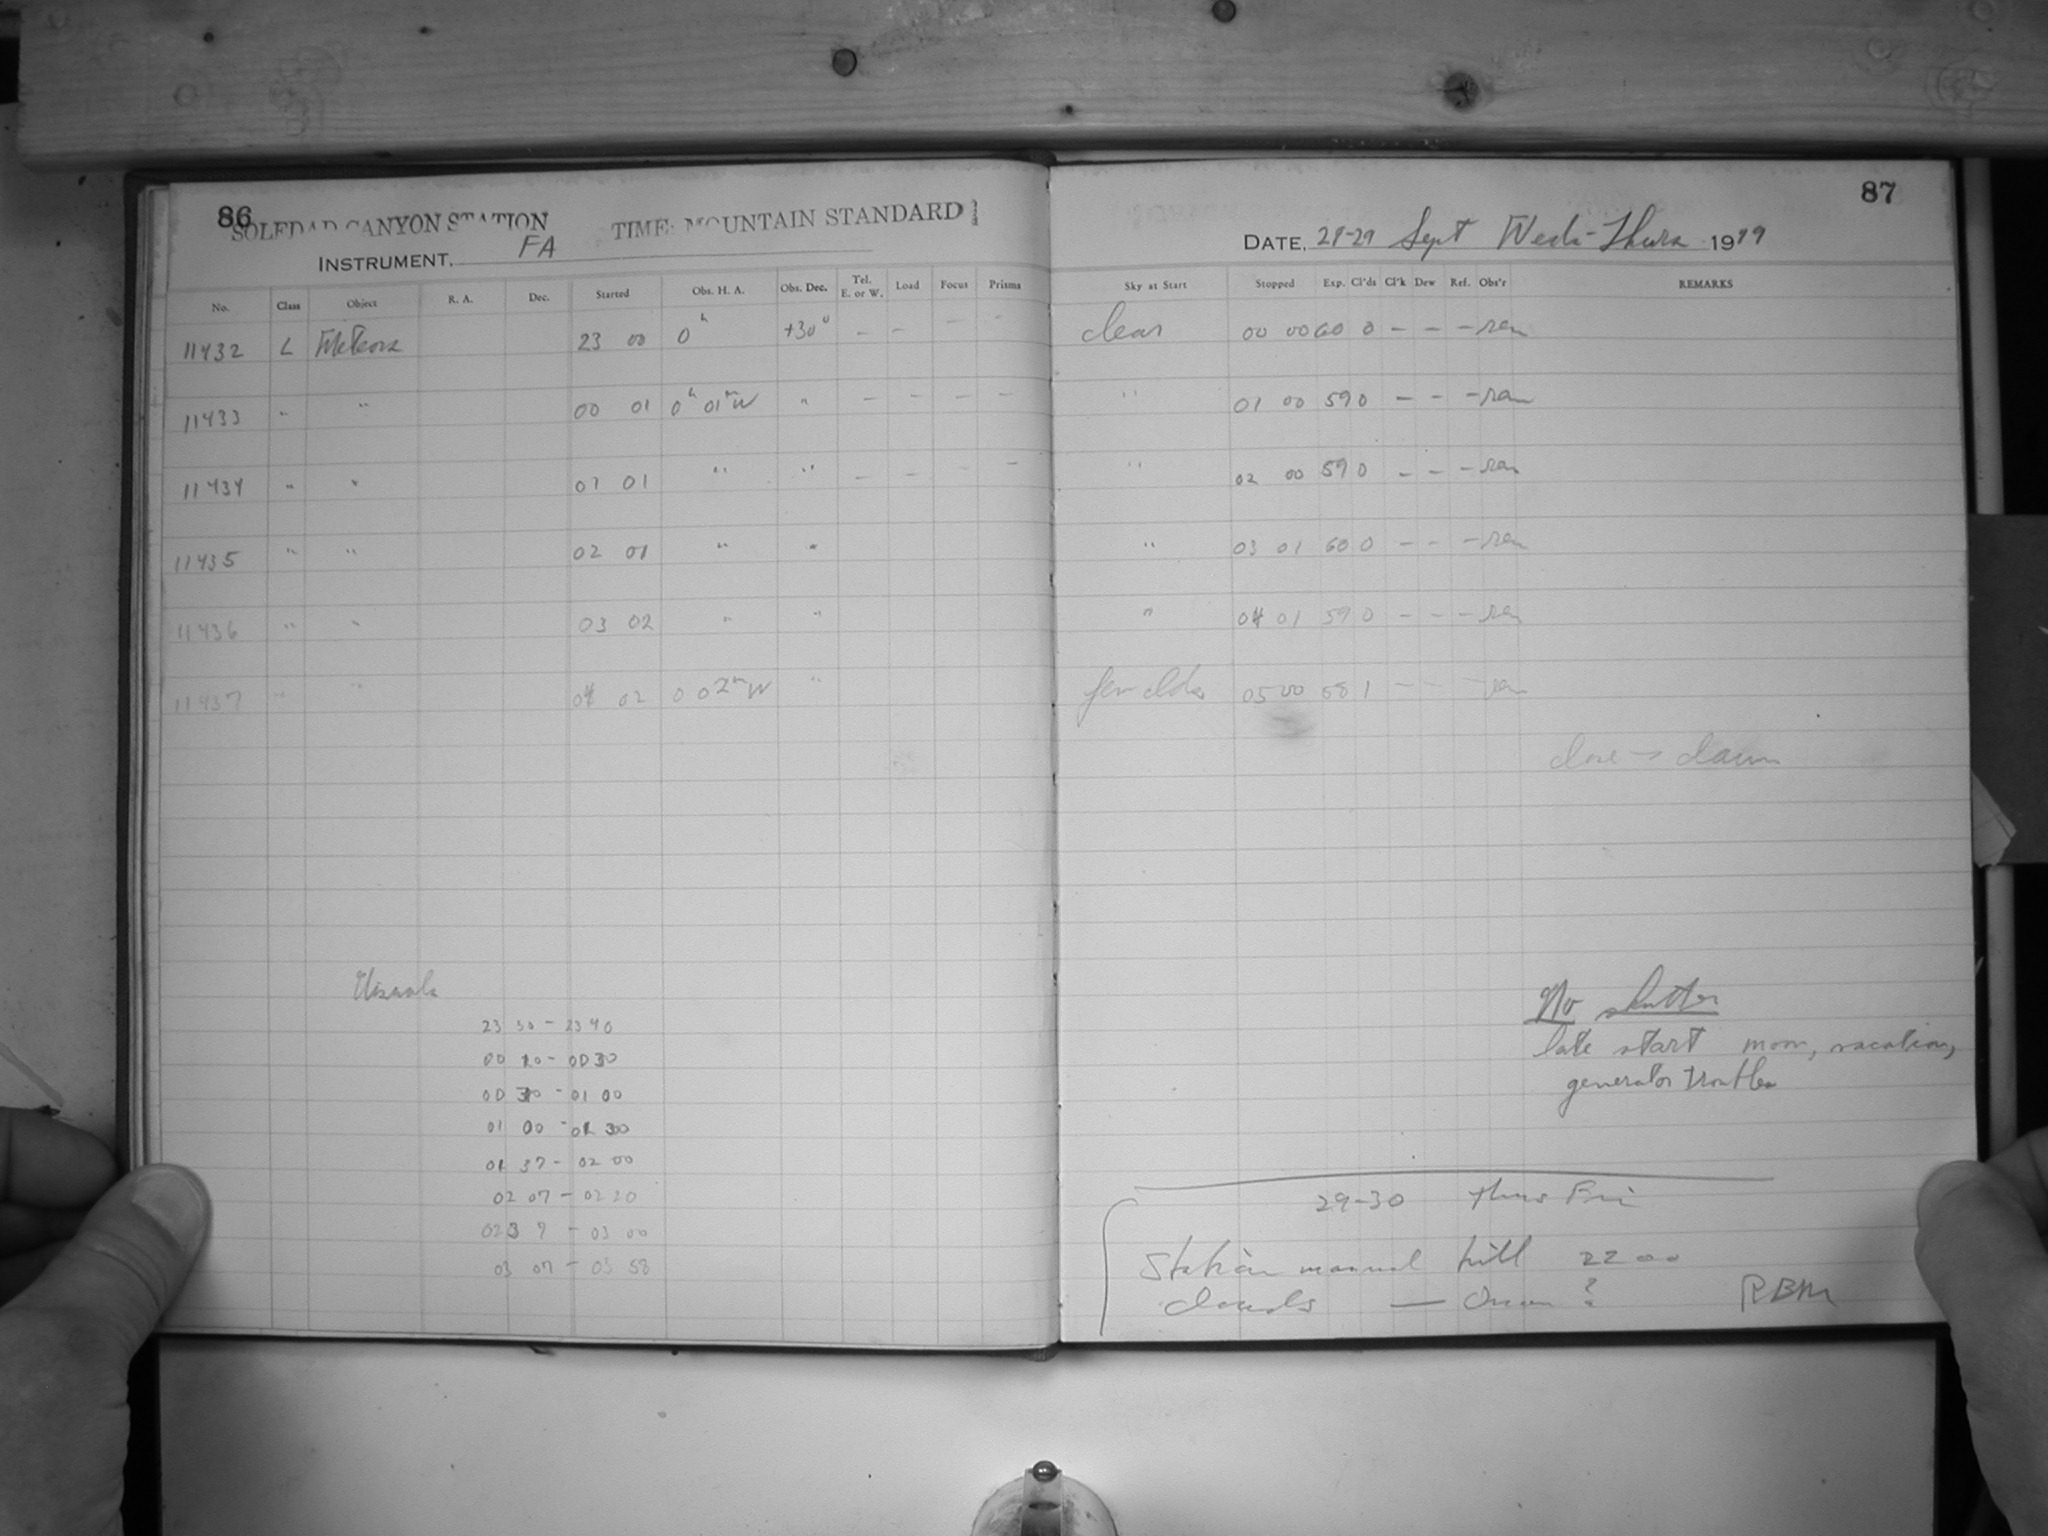 86
SOLEDAD CANYON STATION TIME: MOUNTAIN STANDARD
INSTRUMENT. FA
No. Class Object R. A. Dec. Started Obs. H. A. Obs. Dec. Tel. E. or W. Load Focus Prisms
11432 L Meteors 23 00 0h +30° – – – –
11433 " " 00 01 0h 01m W " – – – –
11434 " " 01 01 " " – – – –
11435 " " 02 01 " "
11436 " " 03 02 " "
11437 " " 04 02 0 02m W "
Visuals
23 30 – 23 40
00 20 – 00 30
00 30 – 01 00
01 00 – 01 30
01 37 – 02 00
02 07 – 02 20
02 37 – 03 00
03 07 – 03 58
87
DATE, 28-29 Sept Wed-Thurs 1949
Sky at Start Stopped Exp. Cl'ds Cl'k Dew Ref. Obs'r REMARKS
clear 00 00 60 0 – – –
" 01 00 59 0 – – –
" 02 00 59 0 – – –
" 03 01 60 0 – – –
" 04 01 59 0 – – –
few clds 05 00 58 1 – – –
close → dawn
No shutter
late start moon, vacation,
generator trouble
29-30 Thurs Fri
Station manned till 22 00
clouds — ?
RBM